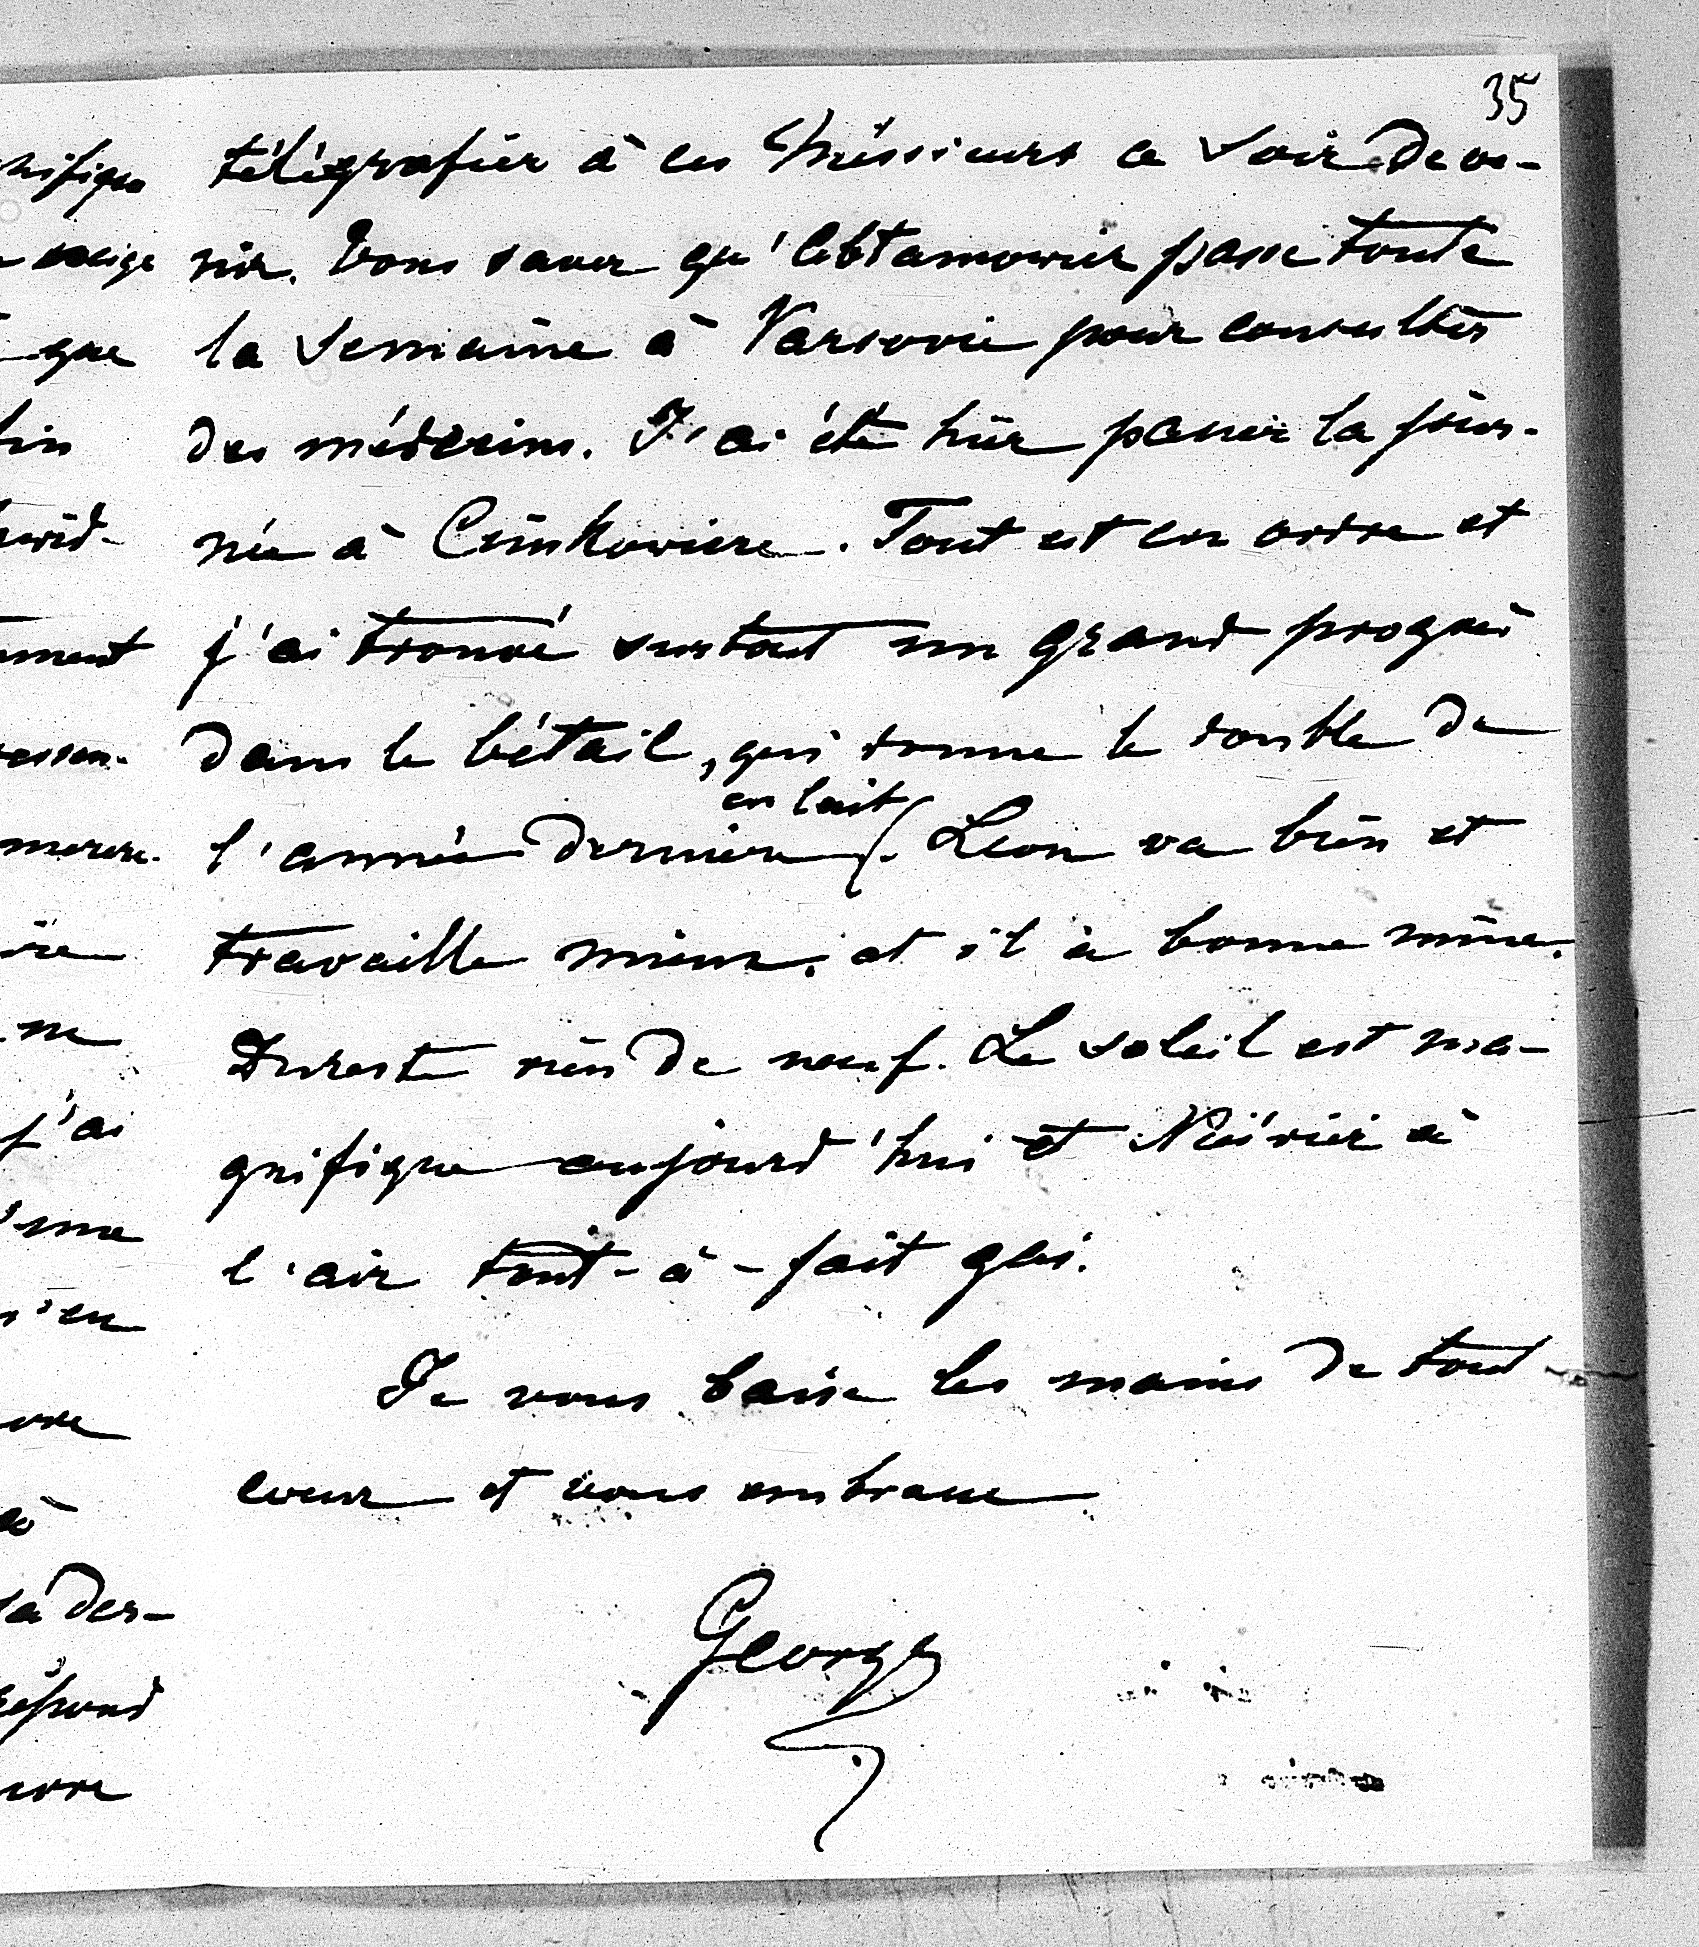 35
télégrafier à ces Messieurs ce soir de ve-
nir. Vous savez qu' passe toute
la semaine à Varsovie pour consulter
des médecins. J'ai été hier passer la jour-
née à . Tout est en ordre et
j'ai trouvé surtout un grand progrès
dans le bétail, qui donne le double de
en lait
l'année dernière. Leon va bien et
travaille mieux. et il à bonne mine.
Dureste rien de neuf. Le soleil est ma-
gnifique aujourd'hui et à
l'air tout-à-fait gai.
Je vous baise les mains de tout
coeur et vous embrasse
George
nifique
neige
que
ment
ne
j'ai
n'en
à
répond